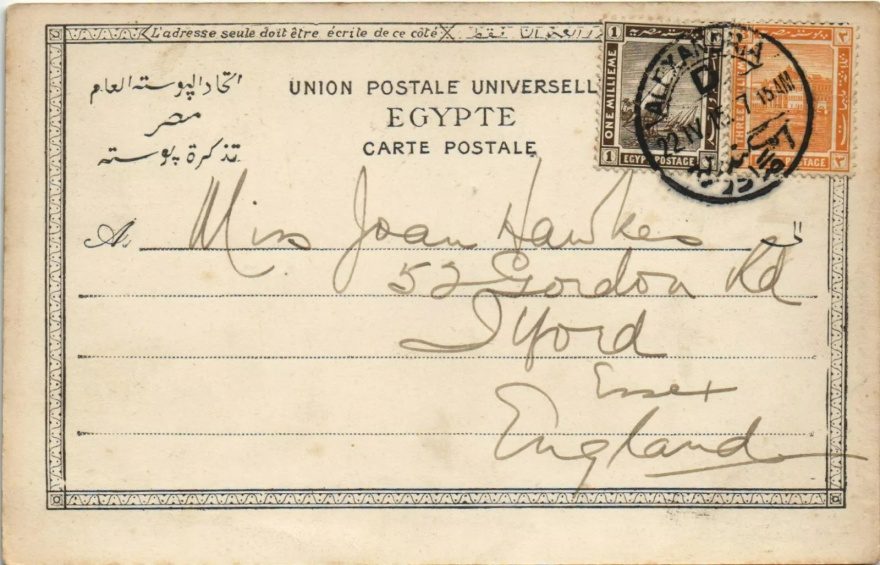 L'adresse seule doit être écrite de ce côté
فقط
اتحاد البوسته العام
مصر
تذكرة بوسته
UNION POSTALE UNIVERSELL
EGYPTE
CARTE POSTALE
1 ONE MILLIEME
1 EGYPT POSTAGE 1
THREE MILLIEMES
POSTAGE
ALEXANDRIA
D
22 IV 7 15 AM
A
الى
Miss Joan Hawkes
52 Gordon Rd
Ilford
Essex
England